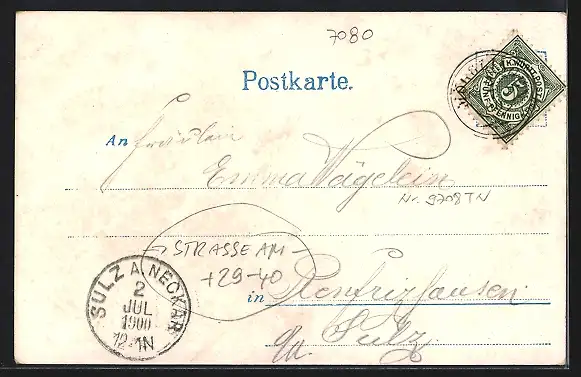 7080
Postkarte.
K.WÜRTT.POST
5
FÜNF PFENNIG
An Fräulein
Emma Wägelein
Nr. 3708TN
STRASSE AM
+29-40
SULZ A. NECKAR
2
JUL
1900
12-1N
in Renfrizhausen
Sulz